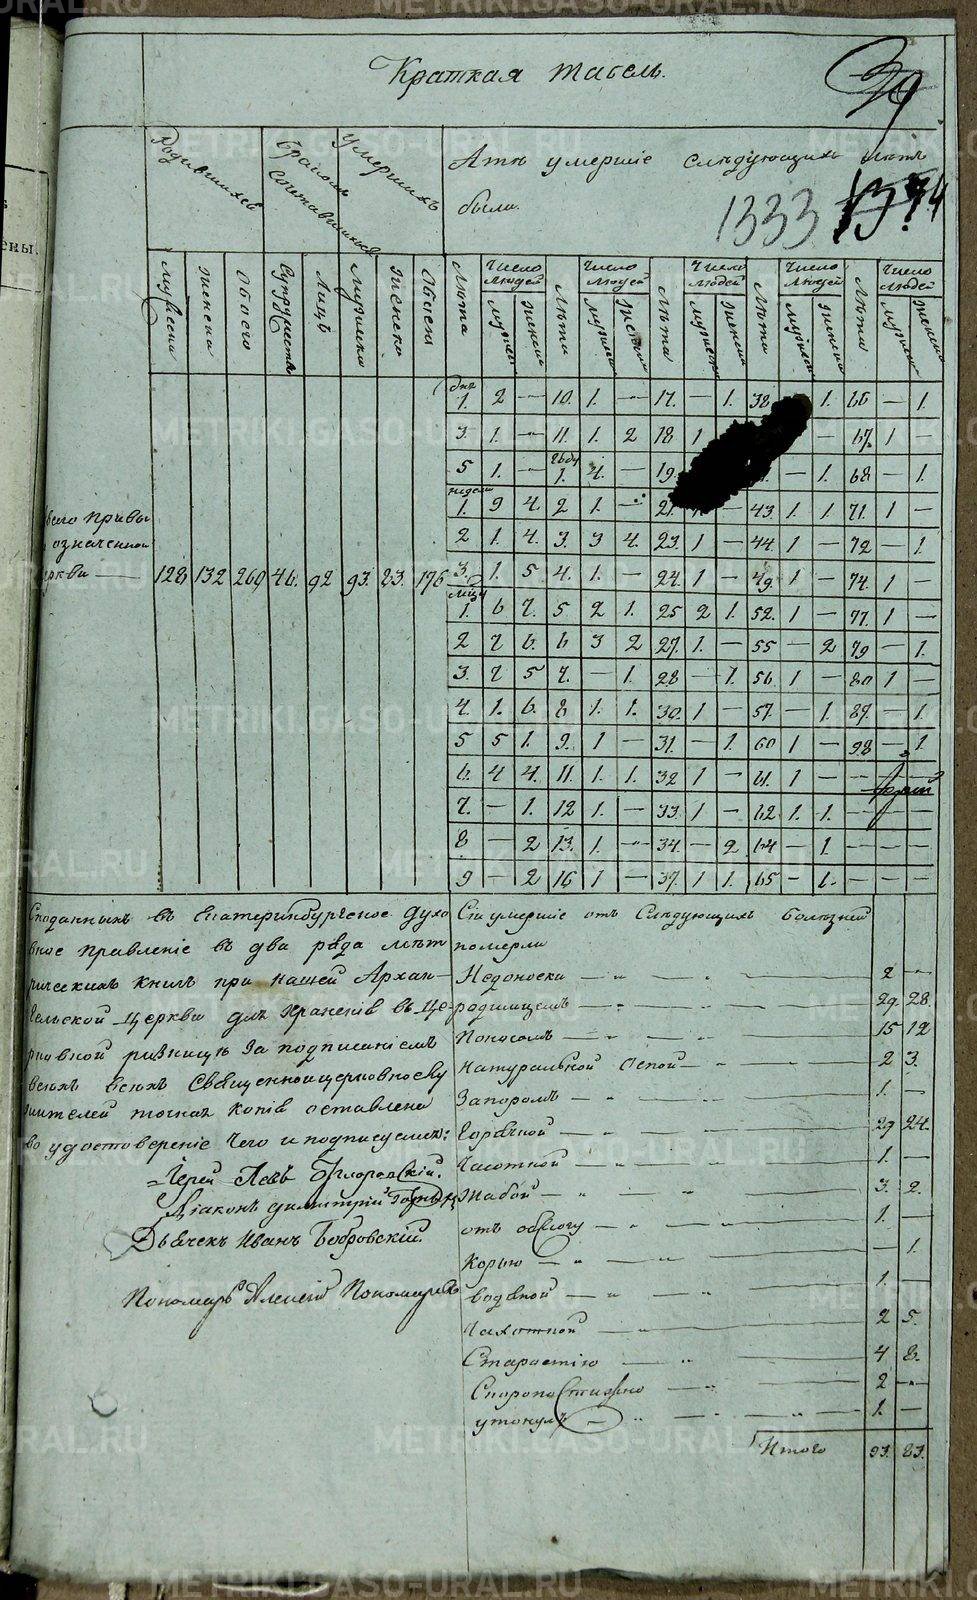 Краткая табель.
39
Родившихся
браком сочетавшихся
умершихъ
А тѣ умершіе слѣдующихъ лѣтъ
были.
1333 1374
Мужеска Женска Обоего Супружества Лицъ Мужеска Женска Обоего
Лѣта Число людей Лѣта Число людей Лѣта Число людей Лѣта Число людей Лѣта Число людей
Мужеска Женска Мужеска Женска Мужеска Женска Мужеска Женска Мужеска Женска
дни
1. 2 — 10. 1. — 17. — 1. 38. 1. 66 — 1.
3. 1. — 11. 1. 2 18 1 — 67. 1 —
5 1. — годы 1. 4. — 19. — 1. 68 — 1.
недели
1. 9 4. 2 1. — 21. — 43. 1. 1 71. 1 —
2 1. 4. 3. 3 4. 23. 1 — 44. 1 — 72 — 1.
всего при вы
означенной
церкви — 128 132 260 46. 92 93. 83. 176
3. 1. 5 4. 1. — 24. 1 — 49. 1 — 74. 1 —
мцы
1. 6 7. 5 2 1. 25 2 1. 52. 1 — 77. 1 —
2 7 6. 6 3 2 27. 1. — 55 — 2 79 — 1.
3. 7 5 7. — 1. 28 — 1. 56. 1 — 80 1 —
4. 1. 6. 8 1. 1. 30. 1 — 57. — 1. 87. — 1.
5 5 1. 9. 1 — 31. — 1. 60 1 — 98 — 1.
6. 4 4. 11. 1. 1. 32 1 — 61. 1 — — — —
7. — 1. 12 1. — 33. 1 — 62. 1. 1. — — —
8 — 2 13. 1. — 34. — 2 64 — 1. — — —
9 — 2 16 1 — 37. 1 1. 65 — 1. — — —
Споданныхъ въ Екатеринбургское духо
вное правленіе въ два ряда метри
ческихъ книгъ при нашей Архан-
гельской церкви для храненія въ це-
рковной ризницѣ за подписаніемъ
всехъ Священноцерковнослу
жителей точная копія оставлена
во удостовереніе чего и подписуемся:
Іерей Левъ
Діаконъ Димитрій
Дьячекъ Иванъ Бобровскій
Пономарь Алексій Пономаревъ
Сіи умершіе от Следующихъ болезней
померли
Недоноски — — 2 —
родимцемъ — — 29. 28.
Поносомъ — — 15 12
Натуральной Оспой — — 2 3.
Запоромъ — — 1. —
Горячкой — — 29 24.
Чахоткой — — 1. —
Жабой — — 3. 2.
отъ — — 1. —
Корью — — — 1.
водяной — — 1. —
Чахоткой — — 2 5.
Старостію — — 4 8.
Скоропостижно — — 2 —
утонулъ — — 1. —
Итого 93. 83.